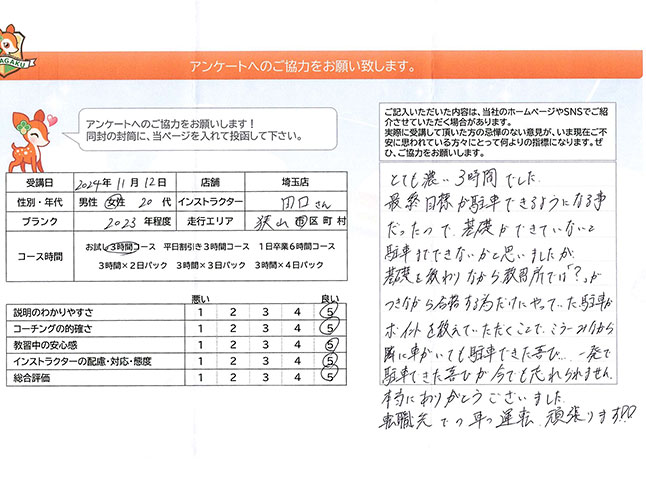 AGAKU
アンケートへのご協力をお願い致します。
アンケートへのご協力をお願いします！
同封の封筒に、当ページを入れて投函して下さい。
受講日 2024年 11月 12日 店舗 埼玉店
性別・年代 男性 女性 20代 インストラクター 田口さん
ブランク 2023年程度 走行エリア 狭山市区町村
コース時間 お試し3時間コース 平日割引き3時間コース 1日卒業6時間コース
3時間×2日パック 3時間×3日パック 3時間×4日パック
悪い 良い
説明のわかりやすさ 1 2 3 4 5
コーチングの的確さ 1 2 3 4 5
教習中の安心感 1 2 3 4 5
インストラクターの配慮・対応・態度 1 2 3 4 5
総合評価 1 2 3 4 5
ご記入いただいた内容は、当社のホームページやSNSでご紹
介させていただく場合があります。
実際に受講して頂いた方の忌憚のない意見が、いま現在ご不
安に思われている方々にとって何よりの指標になります。ぜ
ひ、ご協力をお願いします。
とても濃い3時間でした。
最終目標が駐車できるようになる事
だったので、基礎ができていないと
駐車までできないかと思いましたが、
基礎を教わりながら教習所では「?」が
つきながら合格する為だけにやっていた駐車が
ポイントを教えていただくことで、こう
隣に車がいても駐車できた喜び... 一発で
駐車できた喜びが今でも忘れられません。
本当にありがとうございました。
転職先での車の運転、頑張ります!!